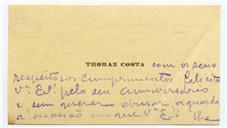 THOMAZ COSTA
com os seus
respeitosos cumprimentos felicita
V.ª Ex.ª pelo seu anniversario
e sem querer abusar aguarda
a occasião em que V.ª Ex.ª lhe